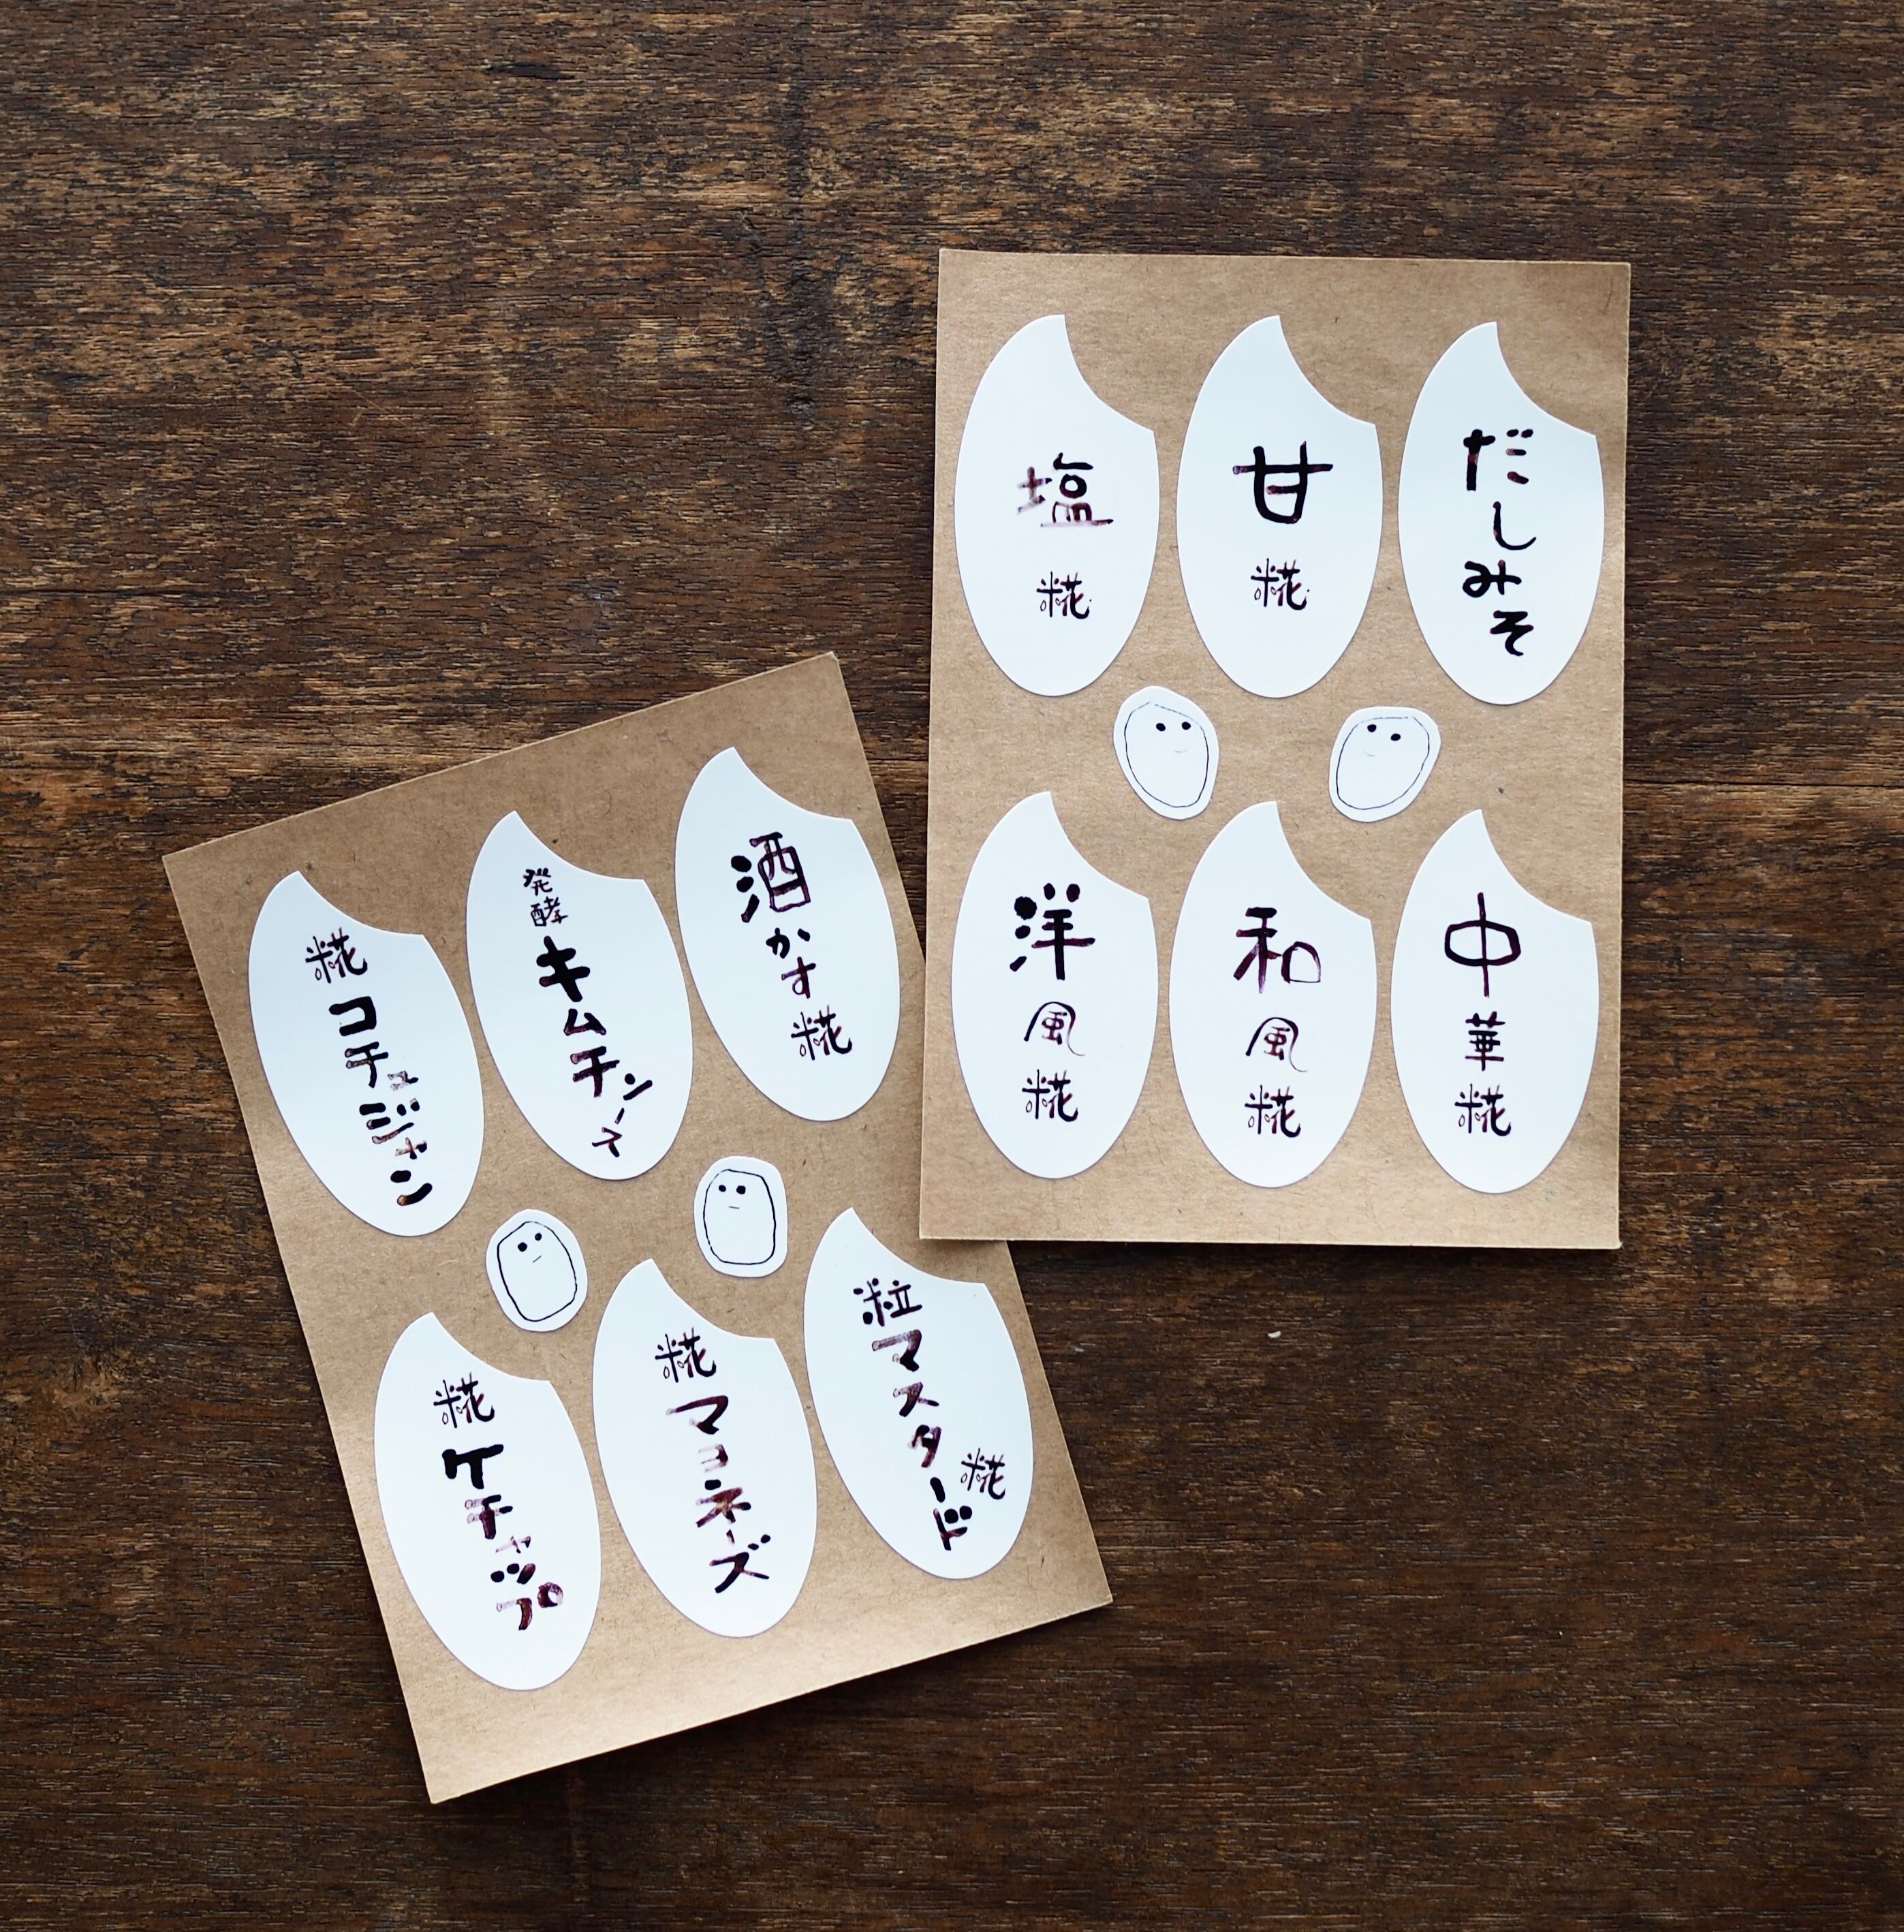 塩糀
甘糀
だしみそ
洋風糀
和風糀
中華糀
糀コチュジャン
発酵キムチソース
酒かす糀
糀ケチャップ
糀マヨネーズ
粒マスタード糀